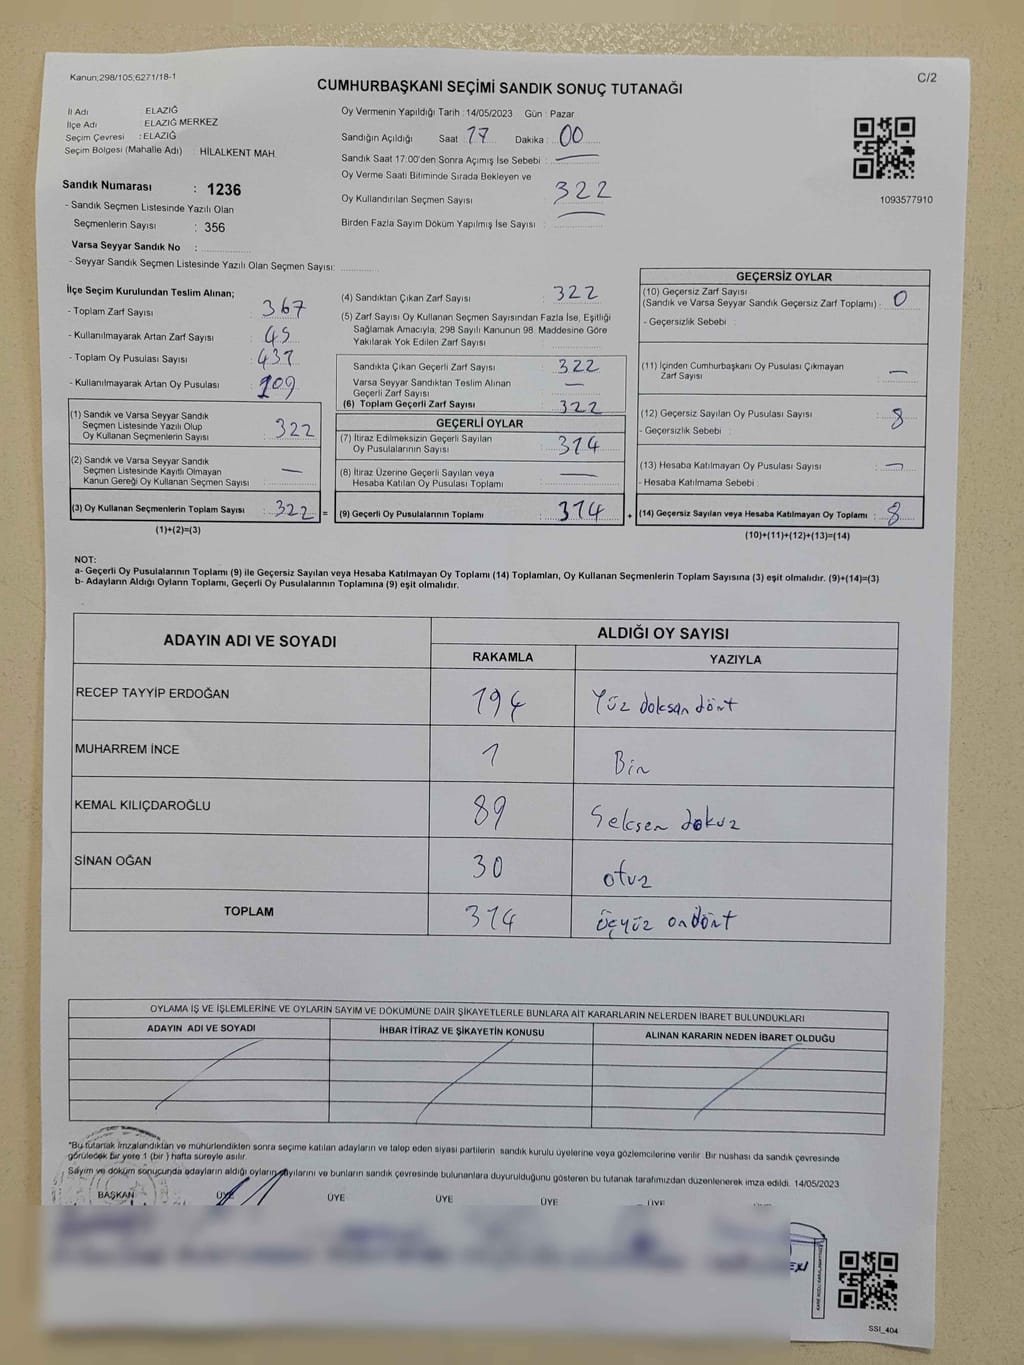 Kanun;298/105;6271/18-1
C/2
CUMHURBAŞKANI SEÇİMİ SANDIK SONUÇ TUTANAĞI
İl Adı ELAZIĞ
İlçe Adı ELAZIĞ MERKEZ
Seçim Çevresi : ELAZIĞ
Seçim Bölgesi (Mahalle Adı) : HİLALKENT MAH.
Sandık Numarası : 1236
- Sandık Seçmen Listesinde Yazılı Olan
Seçmenlerin Sayısı : 356
Varsa Seyyar Sandık No :
- Seyyar Sandık Seçmen Listesinde Yazılı Olan Seçmen Sayısı:
Oy Vermenin Yapıldığı Tarih : 14/05/2023 Gün : Pazar
Sandığın Açıldığı Saat : 17 Dakika : 00
Sandık Saat 17:00'den Sonra Açımış İse Sebebi : —
Oy Verme Saati Bitiminde Sırada Bekleyen ve
Oy Kullandırılan Seçmen Sayısı : 322
Birden Fazla Sayım Döküm Yapılmış İse Sayısı : —
1093577910
İlçe Seçim Kurulundan Teslim Alınan;
- Toplam Zarf Sayısı : 367
- Kullanılmayarak Artan Zarf Sayısı : 45
- Toplam Oy Pusulası Sayısı : 431
- Kullanılmayarak Artan Oy Pusulası : 109
(1) Sandık ve Varsa Seyyar Sandık
Seçmen Listesinde Yazılı Olup
Oy Kullanan Seçmenlerin Sayısı : 322
(2) Sandık ve Varsa Seyyar Sandık
Seçmen Listesinde Kayıtlı Olmayan
Kanun Gereği Oy Kullanan Seçmen Sayısı : —
(3) Oy Kullanan Seçmenlerin Toplam Sayısı : 322 =
(1)+(2)=(3)
(4) Sandıktan Çıkan Zarf Sayısı : 322
(5) Zarf Sayısı Oy Kullanan Seçmen Sayısından Fazla İse, Eşitliği
Sağlamak Amacıyla, 298 Sayılı Kanunun 98. Maddesine Göre
Yakılarak Yok Edilen Zarf Sayısı :
Sandıkta Çıkan Geçerli Zarf Sayısı : 322
Varsa Seyyar Sandıktan Teslim Alınan
Geçerli Zarf Sayısı : —
(6) Toplam Geçerli Zarf Sayısı : 322
GEÇERLİ OYLAR
(7) İtiraz Edilmeksizin Geçerli Sayılan
Oy Pusulalarının Sayısı : 314
(8) İtiraz Üzerine Geçerli Sayılan veya
Hesaba Katılan Oy Pusulası Toplamı : —
(9) Geçerli Oy Pusulalarının Toplamı : 314 +
GEÇERSİZ OYLAR
(10) Geçersiz Zarf Sayısı
(Sandık ve Varsa Seyyar Sandık Geçersiz Zarf Toplamı) : 0
- Geçersizlik Sebebi :
(11) İçinden Cumhurbaşkanı Oy Pusulası Çıkmayan
Zarf Sayısı : —
(12) Geçersiz Sayılan Oy Pusulası Sayısı : 8
- Geçersizlik Sebebi :
(13) Hesaba Katılmayan Oy Pusulası Sayısı : —
- Hesaba Katılmama Sebebi :
(14) Geçersiz Sayılan veya Hesaba Katılmayan Oy Toplamı : 8
(10)+(11)+(12)+(13)=(14)
NOT:
a- Geçerli Oy Pusulalarının Toplamı (9) ile Geçersiz Sayılan veya Hesaba Katılmayan Oy Toplamı (14) Toplamları, Oy Kullanan Seçmenlerin Toplam Sayısına (3) eşit olmalıdır. (9)+(14)=(3)
b- Adayların Aldığı Oyların Toplamı, Geçerli Oy Pusulalarının Toplamına (9) eşit olmalıdır.
ADAYIN ADI VE SOYADI ALDIĞI OY SAYISI
RAKAMLA YAZIYLA
RECEP TAYYİP ERDOĞAN 194 Yüz doksan dört
MUHARREM İNCE 1 Bir
KEMAL KILIÇDAROĞLU 89 Seksen dokuz
SİNAN OĞAN 30 otuz
TOPLAM 314 üçyüz ondört
OYLAMA İŞ VE İŞLEMLERİNE VE OYLARIN SAYIM VE DÖKÜMÜNE DAİR ŞİKAYETLERLE BUNLARA AİT KARARLARIN NELERDEN İBARET BULUNDUKLARI
ADAYIN ADI VE SOYADI İHBAR İTİRAZ VE ŞİKAYETİN KONUSU ALINAN KARARIN NEDEN İBARET OLDUĞU
*Bu tutanak imzalandıktan ve mühürlendikten sonra seçime katılan adayların ve talep eden siyasi partilerin sandık kurulu üyelerine veya gözlemcilerine verilir. Bir nüshası da sandık çevresinde
görülecek bir yere 1 (bir ) hafta süreyle asılır.
Sayım ve döküm sonucunda adayların aldığı oyların sayılarını ve bunların sandık çevresinde bulunanlara duyurulduğunu gösteren bu tutanak tarafımızdan düzenlenerek imza edildi. 14/05/2023
BAŞKAN ÜYE ÜYE ÜYE ÜYE ÜYE
SSI_404